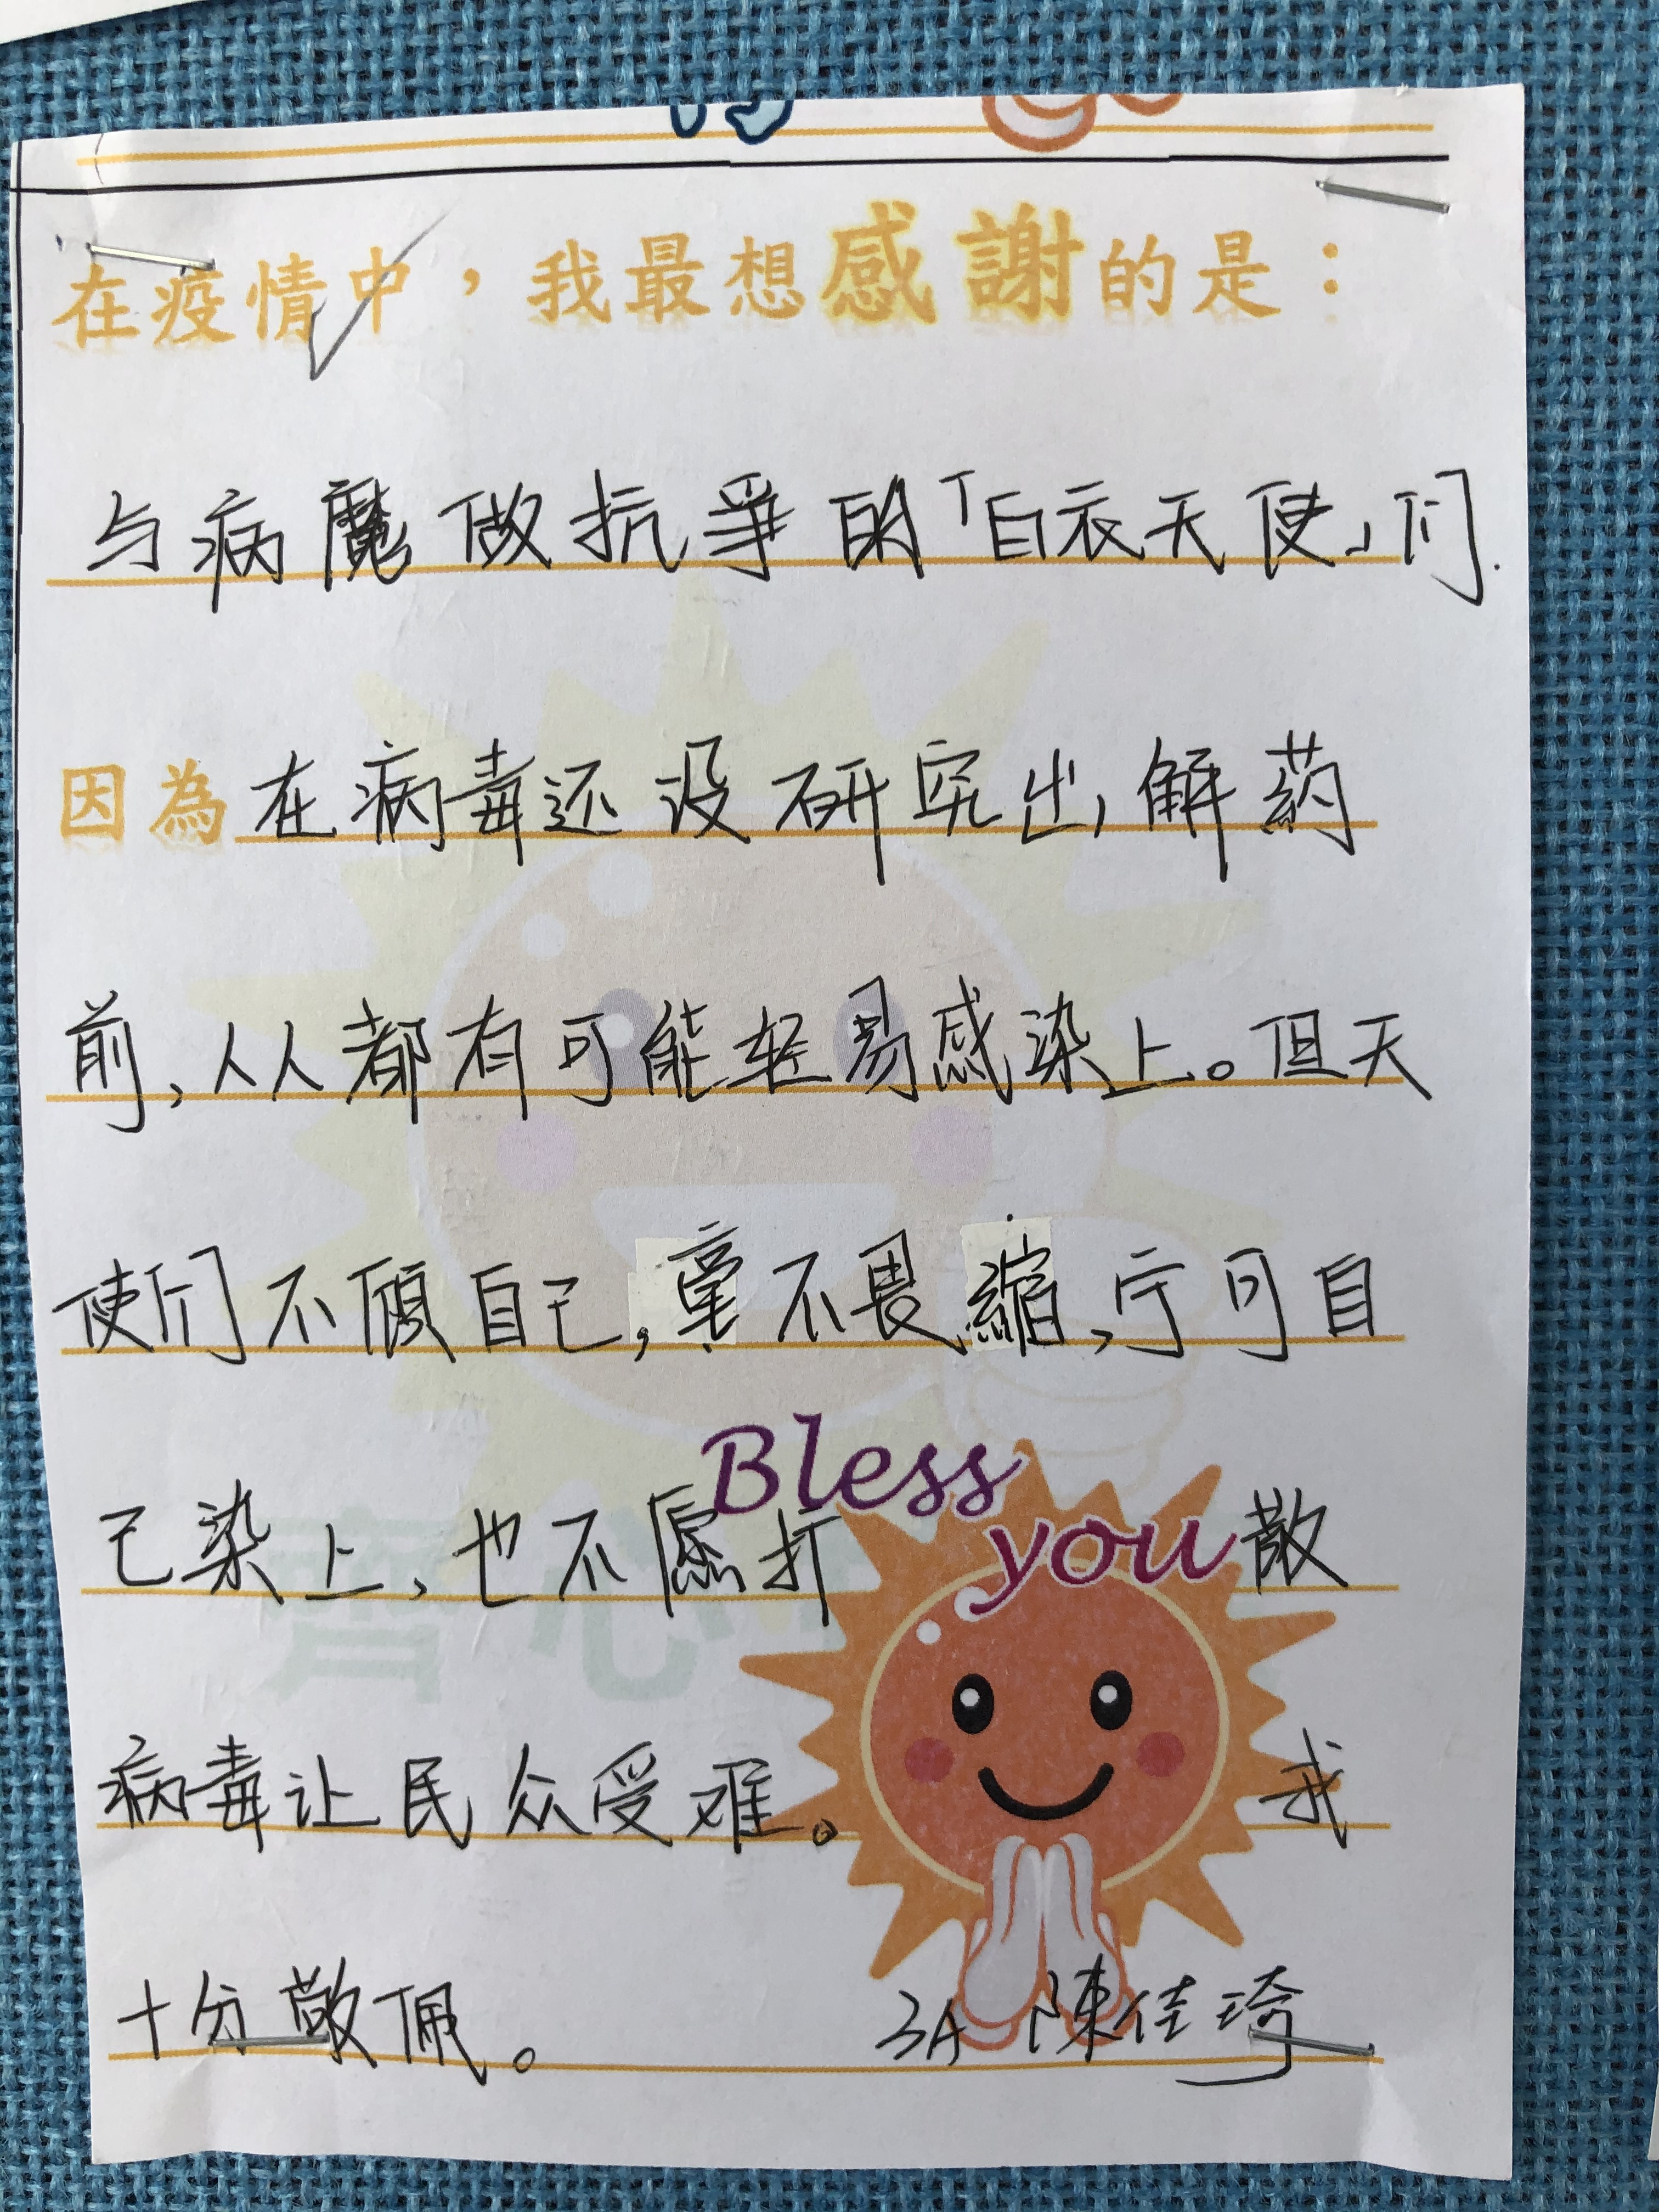 在疫情中，我最想感謝的是：
与病魔做抗爭的「白衣天使」们.
因為在病毒还没研究出解药
前,人人都有可能轻易感染上。但天
使们不顾自己,毫不畏缩,宁可自
Bless
己染上,也不愿打 you 散
齊心
病毒让民众受难。我
十分敬佩。 3A 陳佳琦